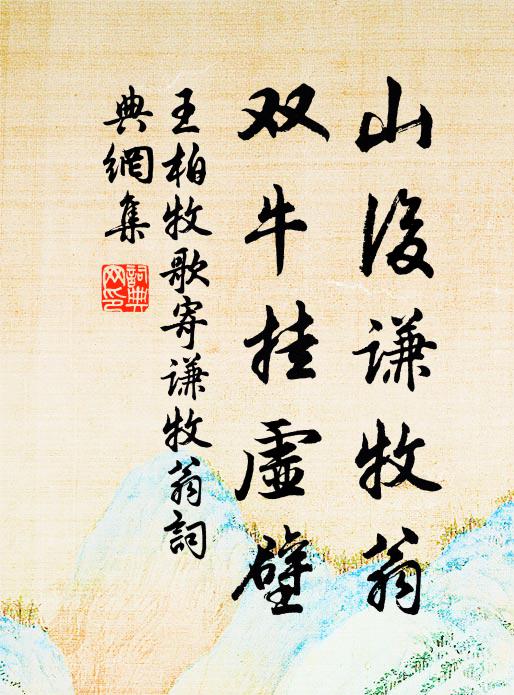 山後谦牧翁
双牛挂虚壁
王柏牧歌寄谦牧翁詞
典網集
詞典
网印